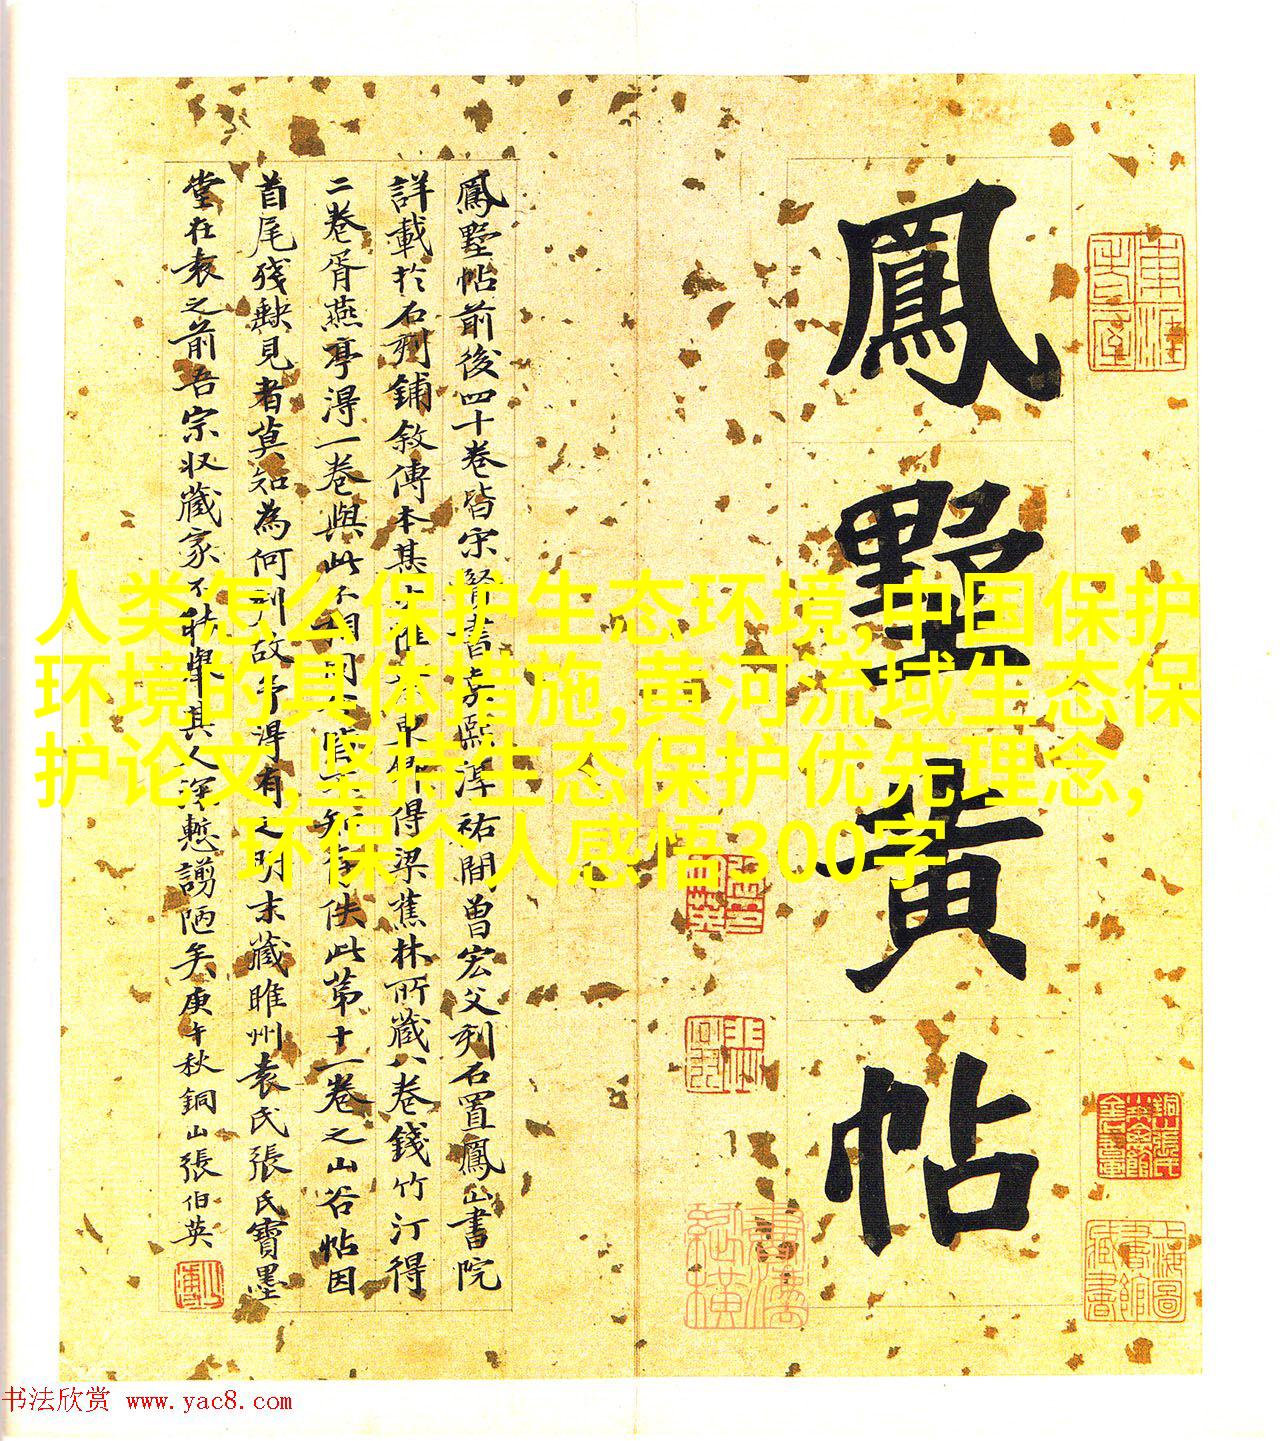 鳳墅黄帖
鳳墅帖前後四十卷皆宋賢書嘉熙淳祐間曾宏父刋石置鳳山書院
詳載於石刻鋪敘傳本甚得梁蕉林所藏八卷錢竹汀得
二卷胥燕亭得一卷與此不相同知存佚此第十一卷之山谷帖因
首尾殘缺見者莫知為何刋故予得有之明末藏睢州袁氏張氏寶墨
堂在袁之前吾宗収藏家不能舉其人深慙謭陋矣庚午秋銅山張伯英
人类怎么保护生态环境,中国保护
环境的具体措施,黄河流域生态保
护论文,坚持生态保护优先理念,
环保个人感悟300字
上海圖書館藏書
书法欣赏 www.yac8.com